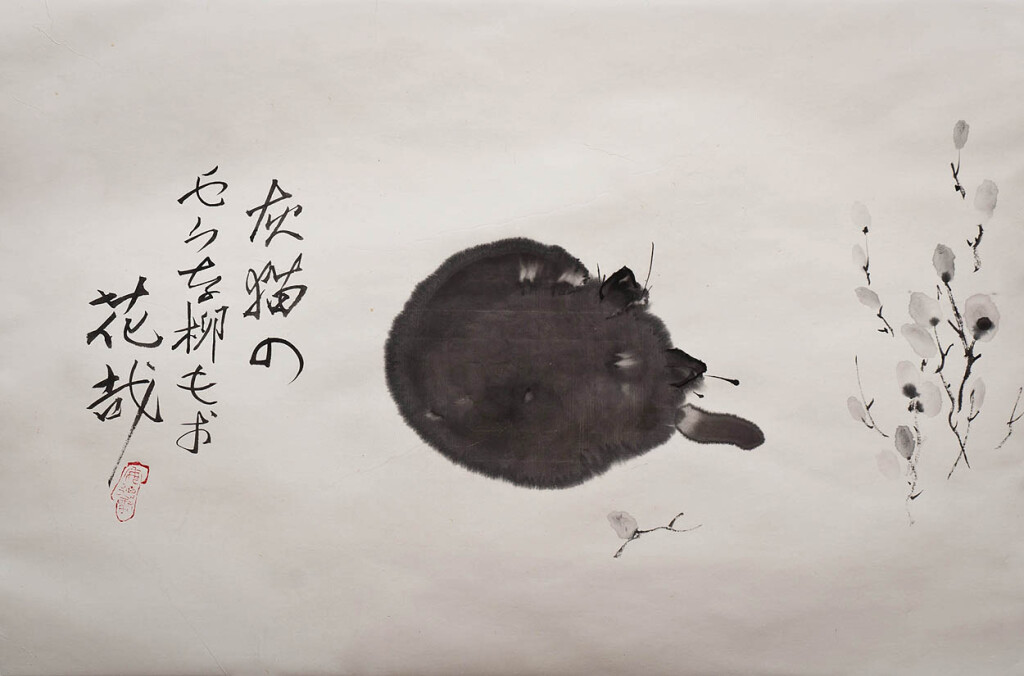 灰猫の
やうな柳もお
花哉